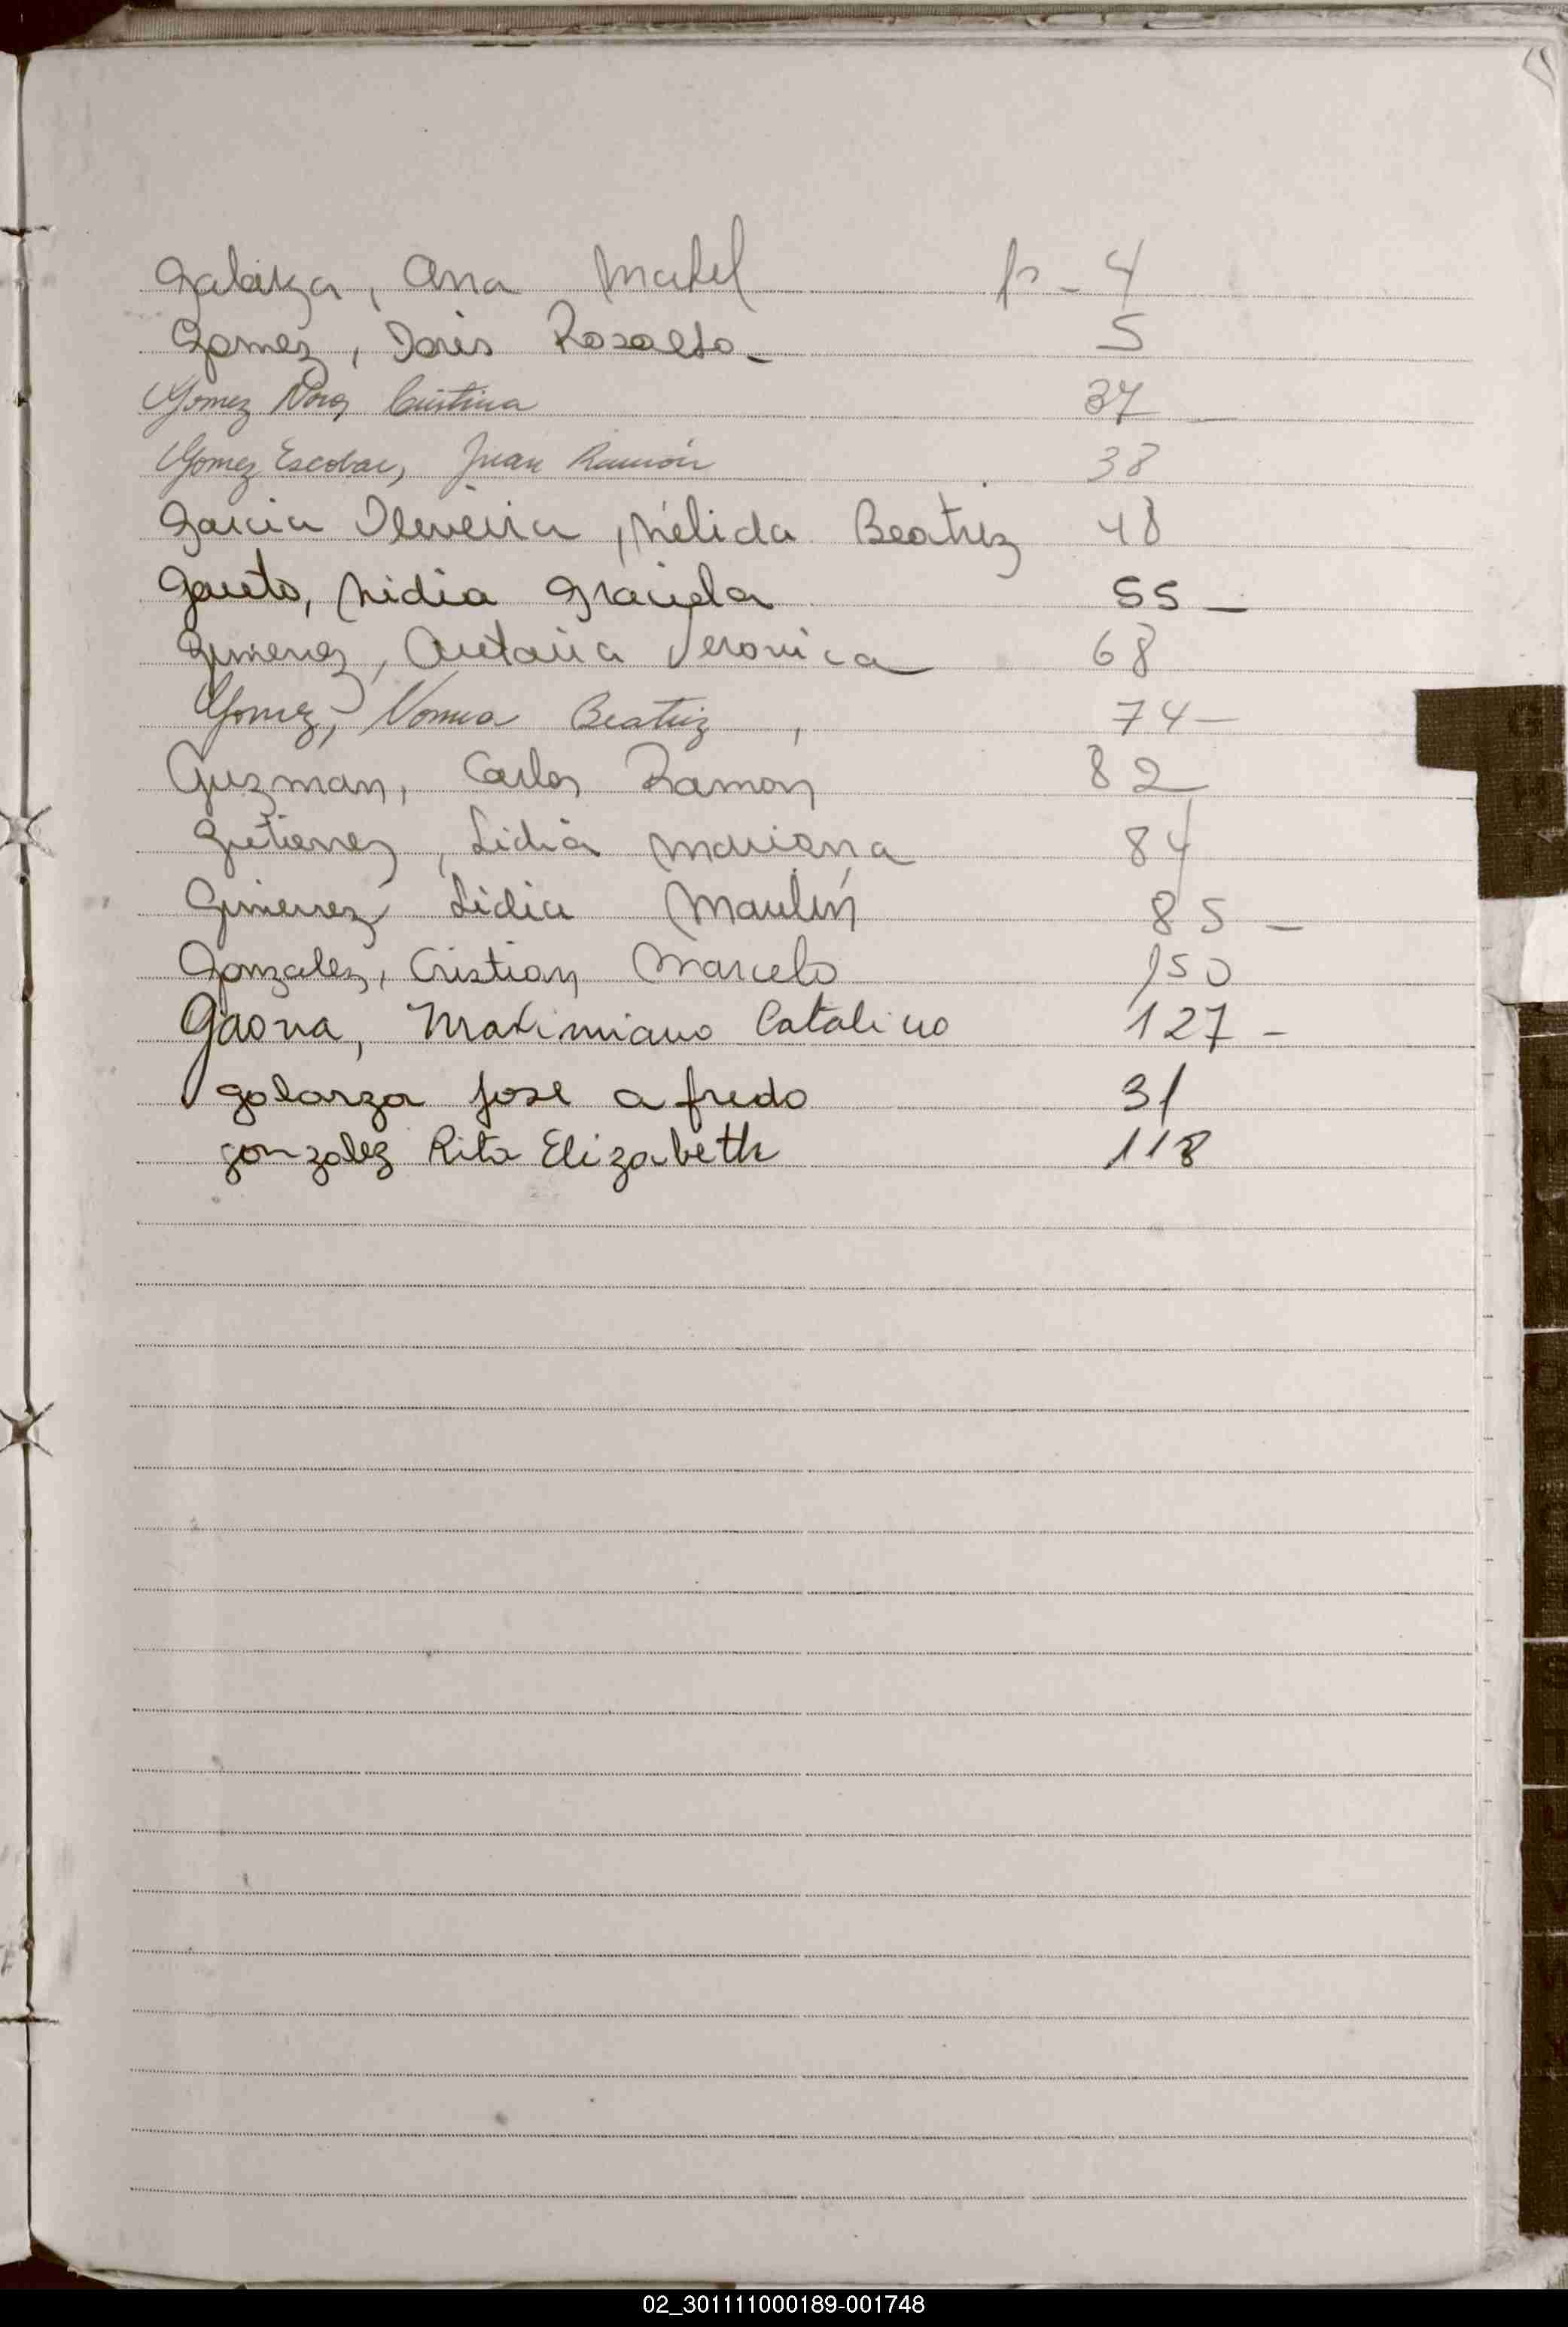 Galarza, Ana Mabel p- 4
Gomez, Doris Rosalba- 5
Gomez Nora Cristina 37 -
Gomez Escobar, Juan Ramón 38
Garcia Oliveira, Nélida Beatriz 48
Gauto, Nidia Graciela 55 -
Gimenez, Antonia Veronica 68
Gomez, Norma Beatriz, 74-
Guzman, Carlos Ramon 82
Gutierrez, Lidia Mariana 84
Gimenez Lidia 85 -
Gonzalez, Cristian Marcelo 150
Gaona, Maximiano Catalino 127 -
galarza jose a fredo 31
gonzalez Rita Elizabeth 118
G
02_301111000189-001748